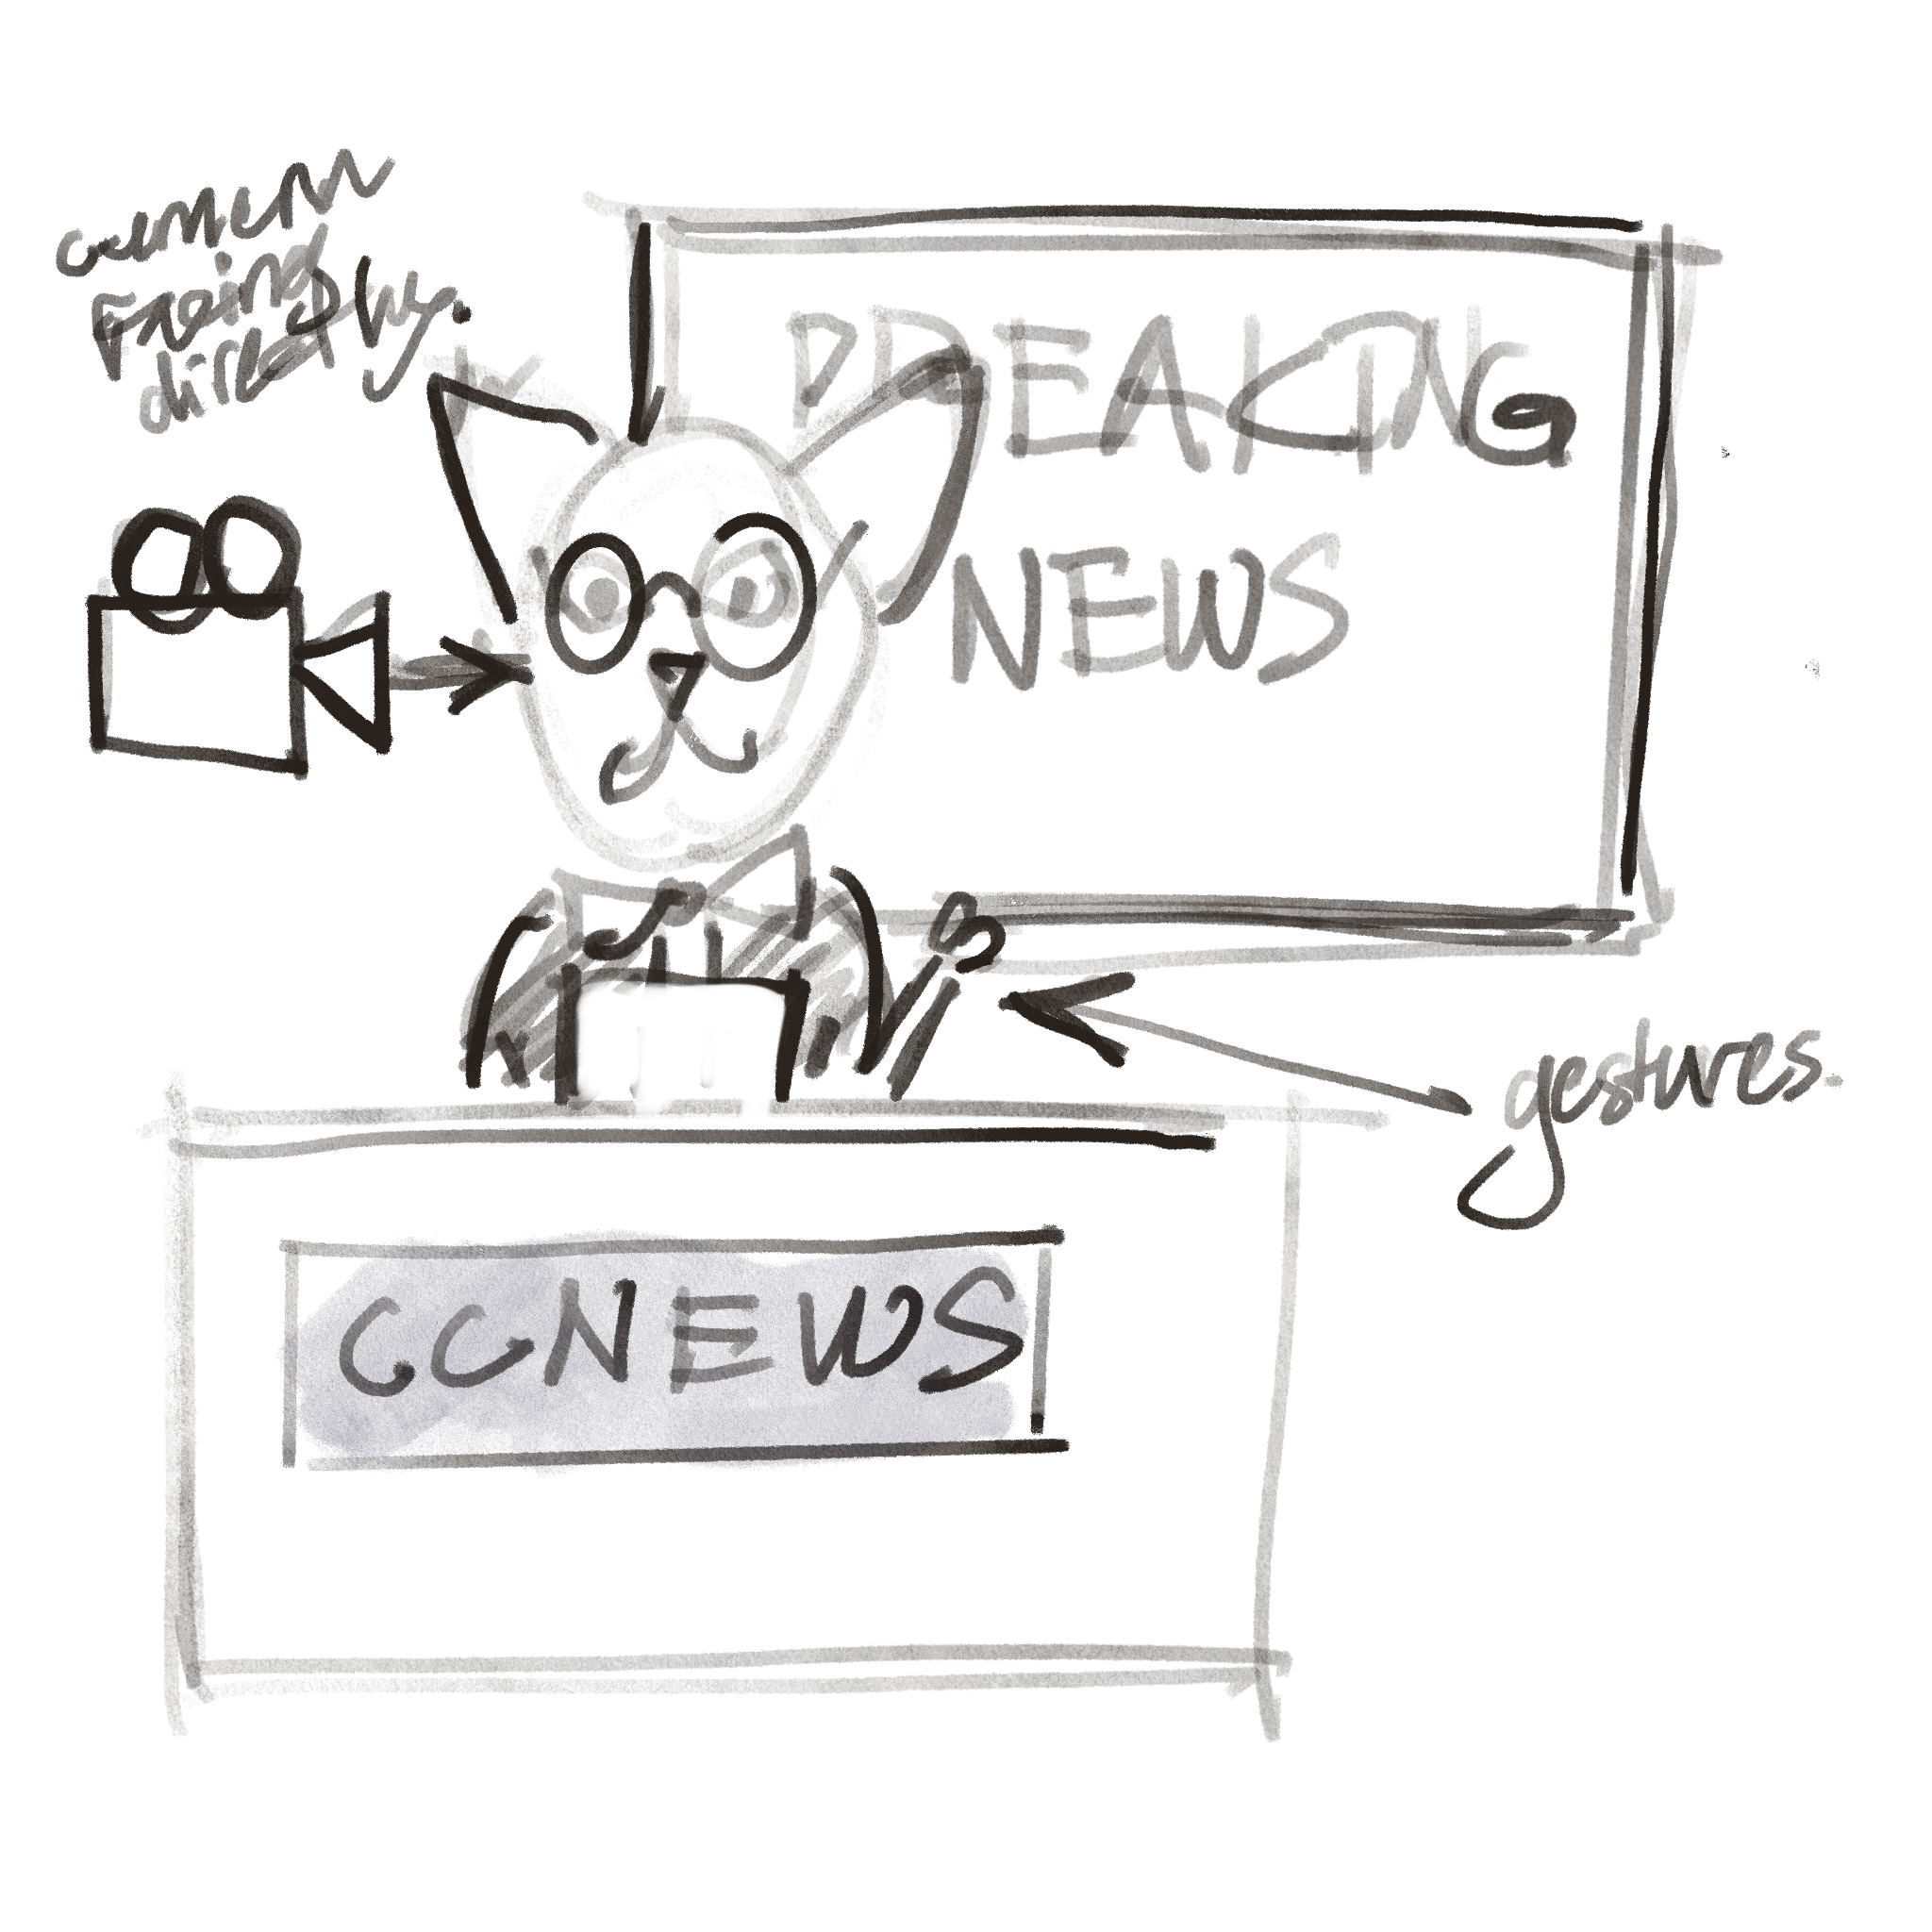 camera
Facing
directly.
BREAKING
NEWS
gestures.
CCNEWS